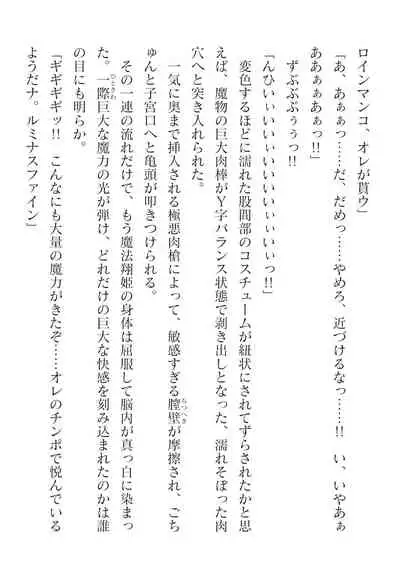 ロインマンコ、オレが貰ウ」
「あ、あぁぁっ……だ、だめっ……やめろ、近づけるなっ……!!　い、いやあぁ
ああぁぁあぁっ!!」
ずぶぶぶぅぅっ!!
「んひぃいぃいいいいいいいぃいぃいぃっ!!」
変色するほどに濡れた股間部のコスチュームが紐状にされてずらされたかと思
えば、魔物の巨大肉棒がＹ字バランス状態で剥き出しとなった、濡れそぼった肉
穴へと突き入れられた。
一気に奥まで挿入される極悪肉槍によって、敏感すぎる膣壁が摩擦され、ごち
ゅんと子宮口へと亀頭が叩きつけられる。
その一連の流れだけで、もう魔法翔姫の身体は屈服して脳内が真っ白に染まっ
た。一際巨大な魔力の光が弾け、どれだけの巨大な快感を刻み込まれたのかは誰
の目にも明らか。
「ギギギギッ!!　こんなにも大量の魔力がきたぞ……オレのチンポで悦んでいる
ようだナ。ルミナスファイン」